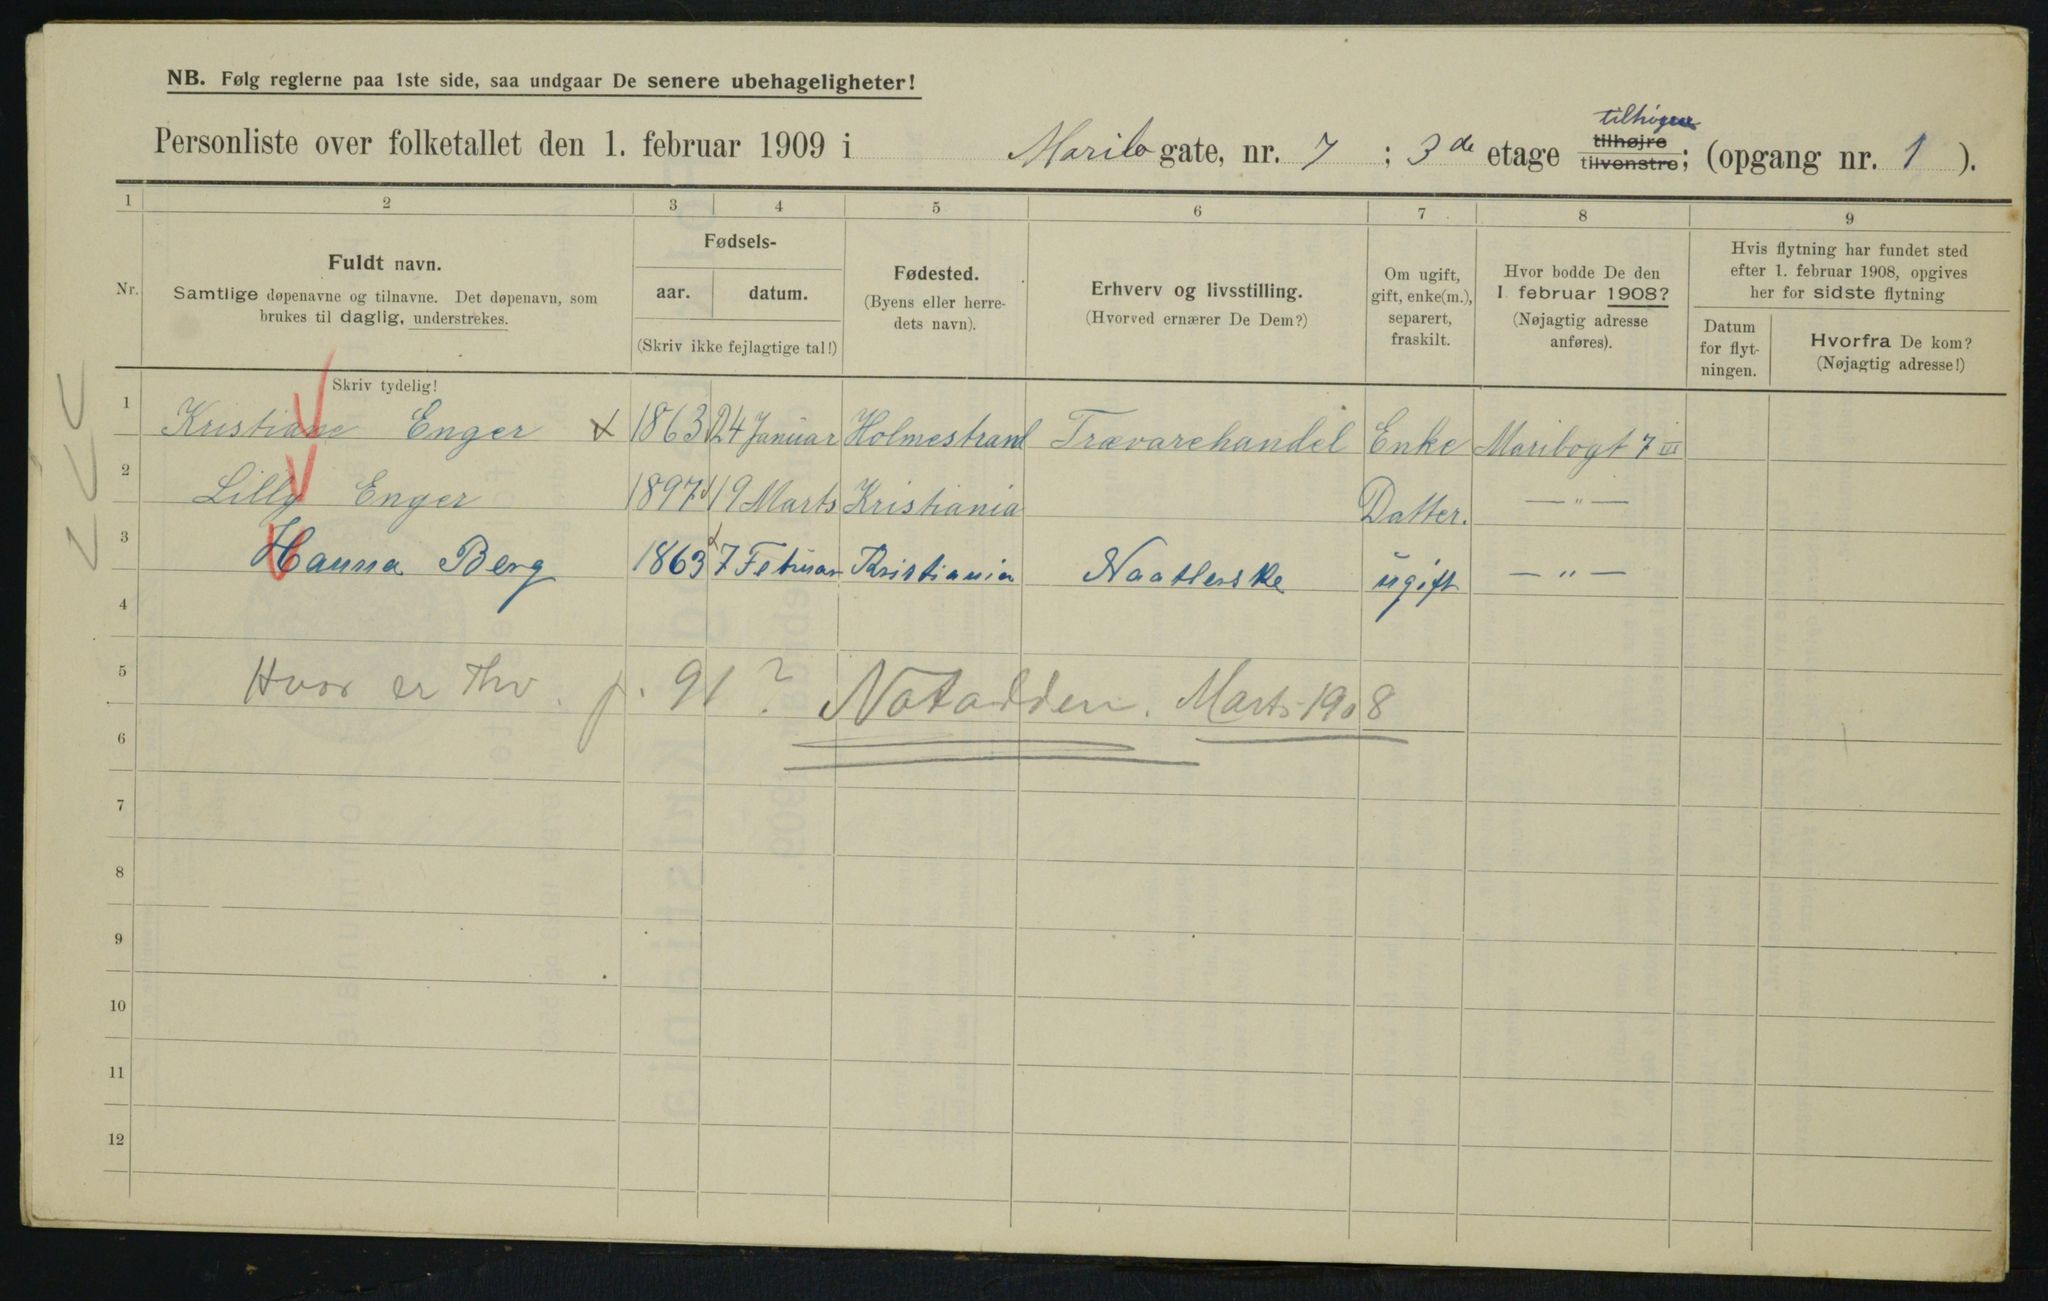 NB. Følg reglerne paa 1ste side, saa undgaar De senere ubehageligheter!
tilhøjre
Personliste over folketallet den 1. februar 1909 i Maribo gate, nr. 7 ; 3 de etage tilhøjre tilvenstre; (opgang nr. 1 ).
1 2 3 4 5 6 7 8 9
Nr.
Fuldt navn.
Samtlige døpenavne og tilnavne. Det døpenavn, som
brukes til daglig, understrekes.
Skriv tydelig!
Fødsels-
aar. datum.
(Skriv ikke fejlagtige tal!)
Fødested.
(Byens eller herre-
dets navn).
Erhverv og livsstilling.
(Hvorved ernærer De Dem?)
Om ugift,
gift, enke(m.),
separert,
fraskilt.
Hvor bodde De den
1. februar 1908?
(Nøjagtig adresse
anføres).
Hvis flytning har fundet sted
efter 1. februar 1908, opgives
her for sidste flytning
Datum
for flyt-
ningen.
Hvorfra De kom?
(Nøjagtig adresse!)
1 Kristiane Enger 1863 24 Januar Holmestrand Trævarehandel Enke Maribogt 7 III
2 Lilly Enger 1897 19 Marts Kristiania Datter. — " —
3 Hanna Berg 1863 7 Februar Kristiania Naatlerske ugift — " —
4
5 Hvor er Thv. f. 91? Notodden. Marts 1908
6
7
8
9
10
11
12